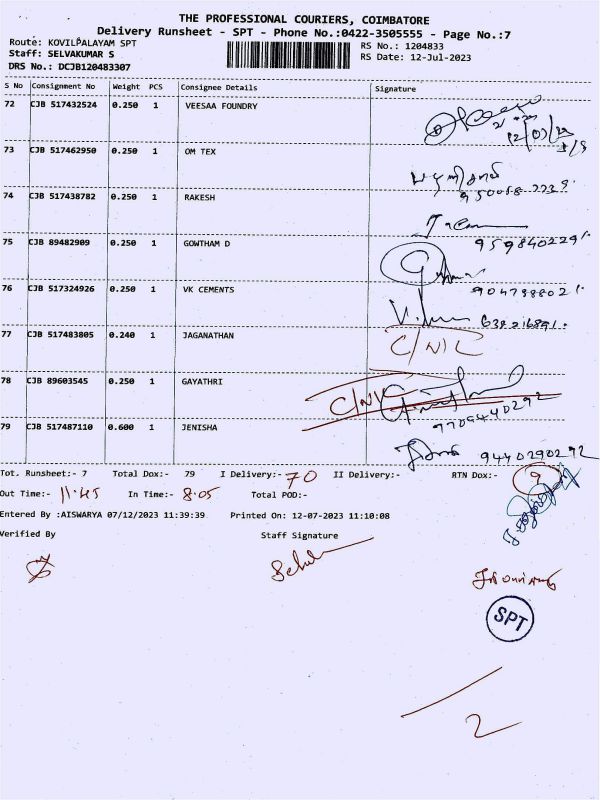 THE PROFESSIONAL COURIERS, COIMBATORE
Delivery Runsheet - SPT - Phone No.:0422-3505555 - Page No.:7
Route: KOVILPALAYAM SPT
RS No.: 1204833
Staff: SELVAKUMAR S
RS Date: 12-Jul-2023
DRS No.: DCJB120483307
S No Consignment No Weight PCS Consignee Details Signature
72 CJB 517432524 0.250 1 VEESAA FOUNDRY
73 CJB 517462950 0.250 1 OM TEX
74 CJB 517438782 0.250 1 RAKESH
75 CJB 89482909 0.250 1 GOWTHAM D
9598402291.
76 CJB 517324926 0.250 1 VK CEMENTS
77 CJB 517483805 0.240 1 JAGANATHAN
C/N/L
78 CJB 89603545 0.250 1 GAYATHRI
79 CJB 517487110 0.600 1 JENISHA
9440290292
Tot. Runsheet:- 7 Total Dox:- 79 I Delivery:- 70 II Delivery:- RTN Dox:- 9
Out Time:- 11.45 In Time:- 8.05 Total POD:-
Entered By :AISWARYA 07/12/2023 11:39:39 Printed On: 12-07-2023 11:10:08
Verified By Staff Signature
SPT
2